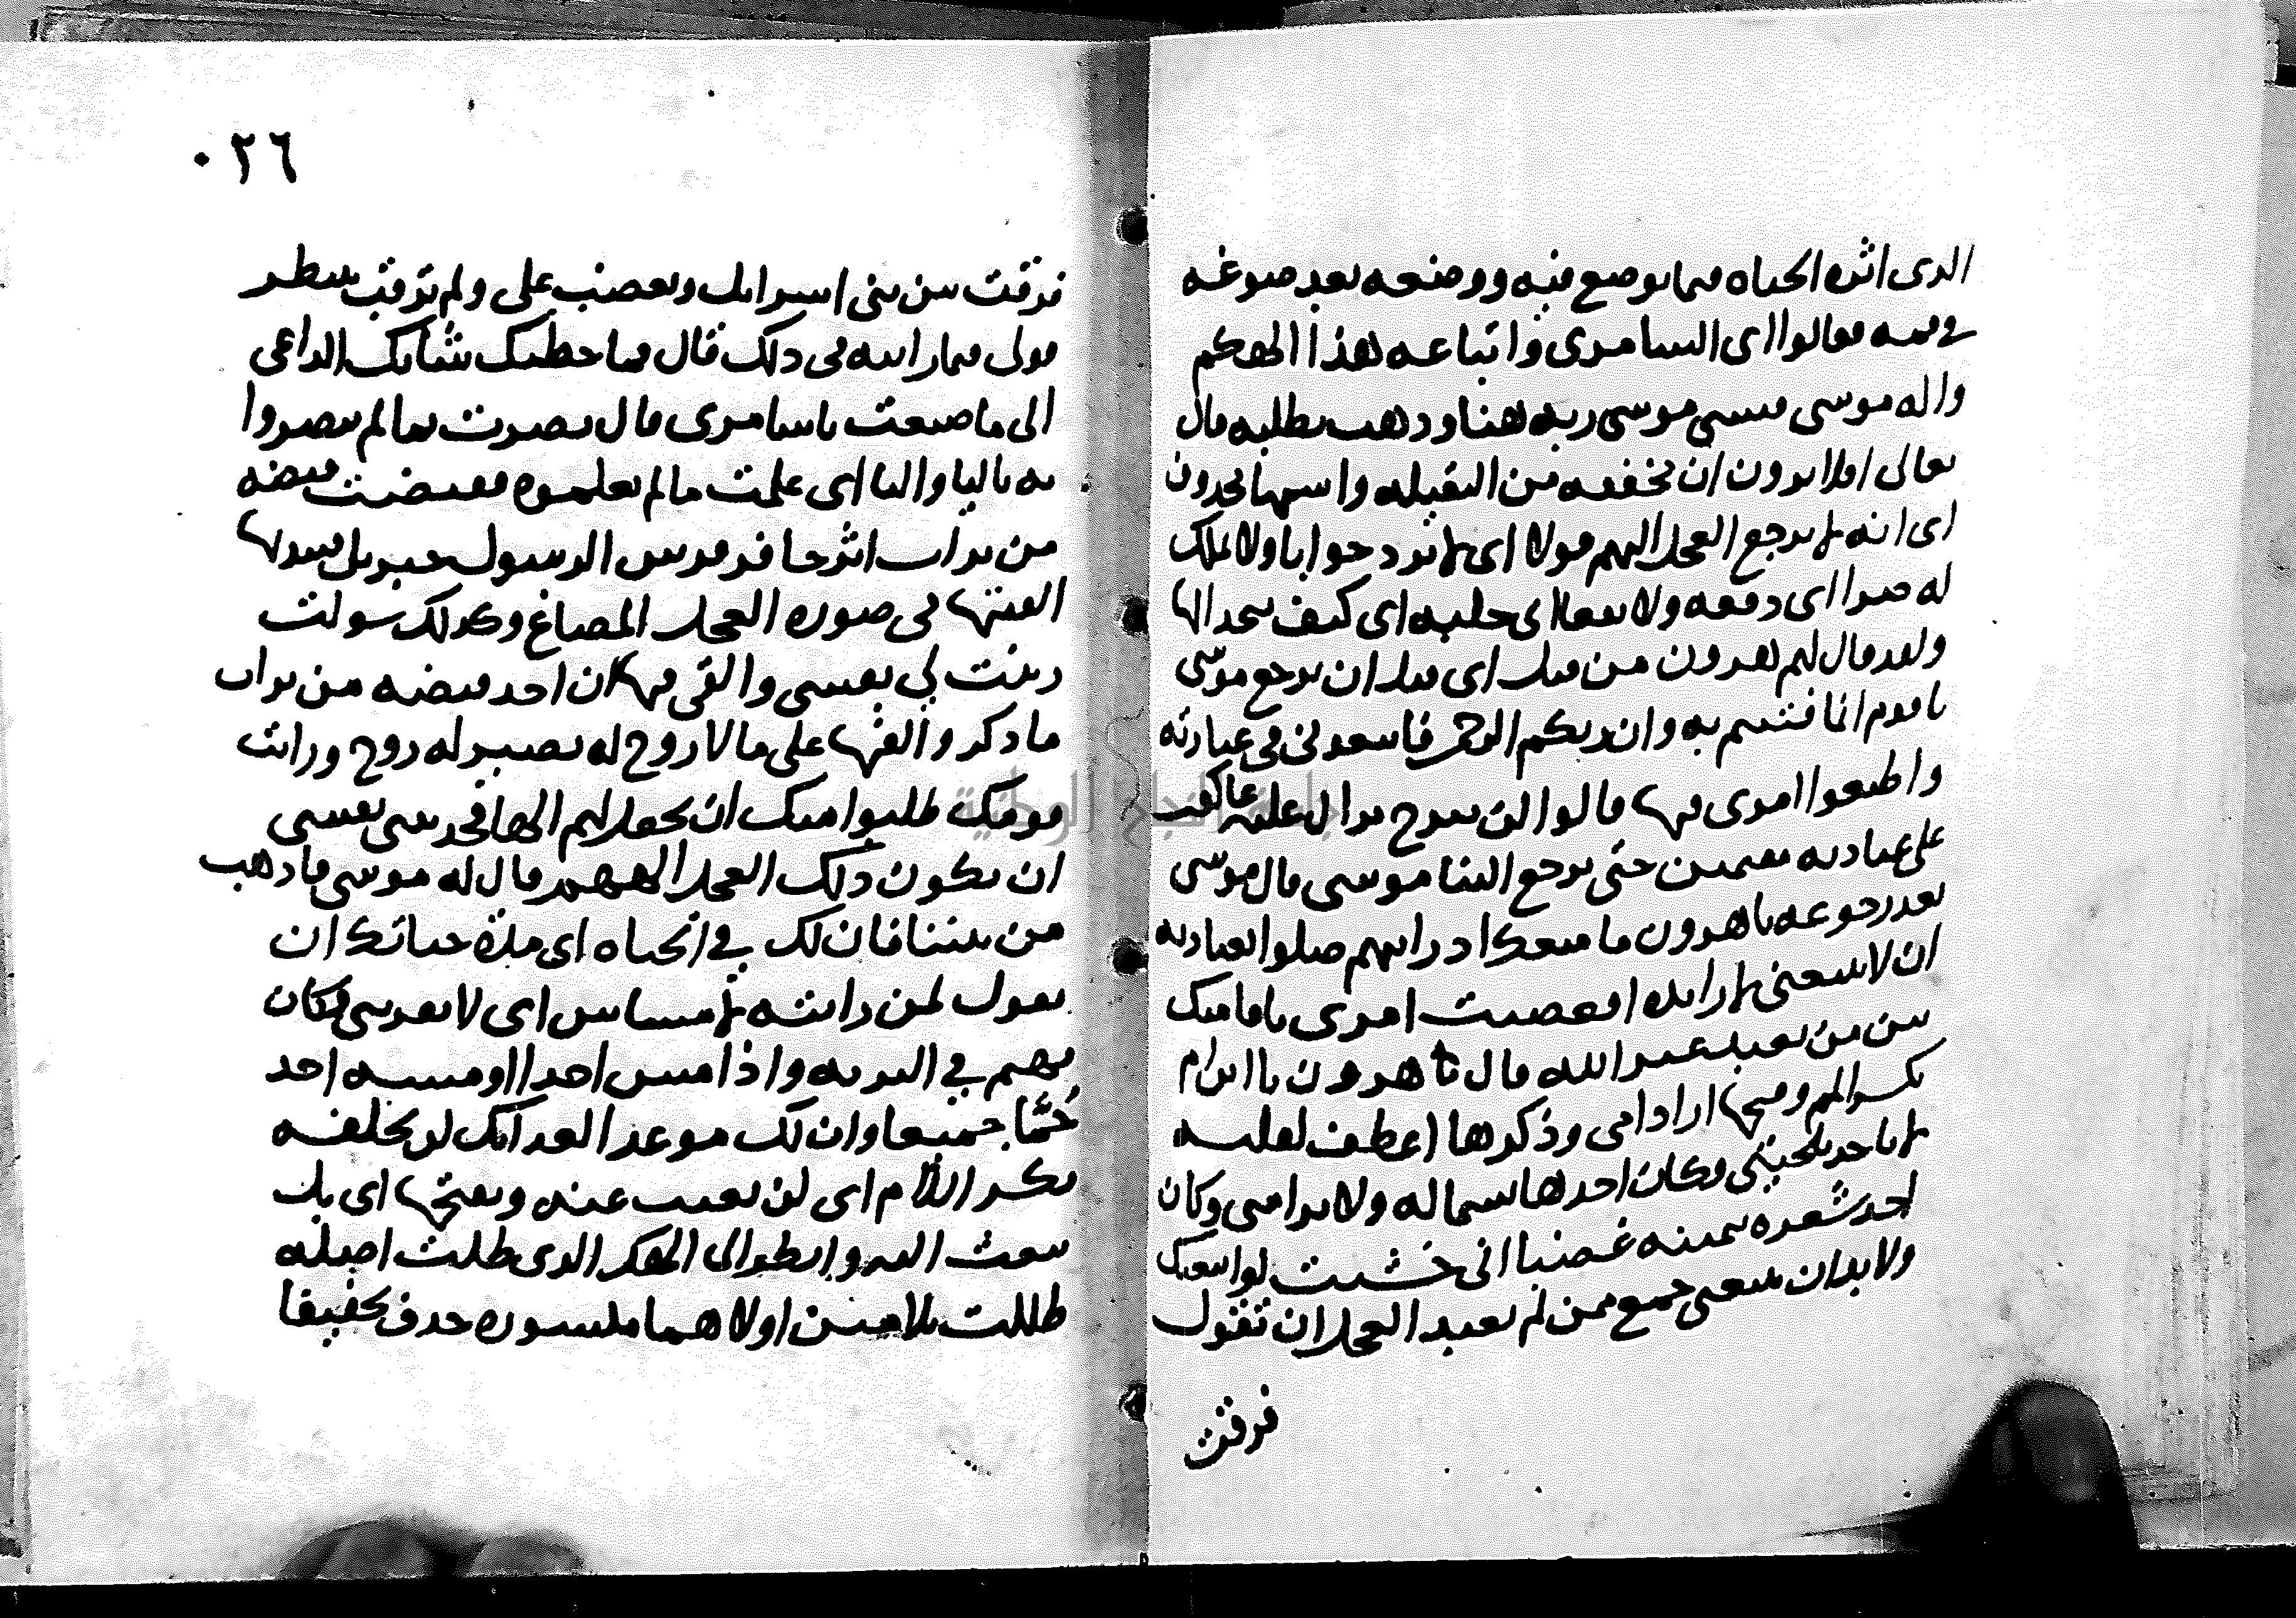 الذي اثره الحياه فيما يوضع فيه ووضعه بعد صوغه
في فمه فقالوا اي السامري واتباعه هذا الهكم
واله موسى فنسي موسى ربه هنا وذهب يطلبه قال
تعالى افلا يرون ان مخففه من الثقيله واسمها محذوف
اي انه لا يرجع العجل اليهم قولا اي لا يرد جوابا ولا يملك
له ضرا اي دفعه ولا نفعا اي جلبه اي كيف يتخذ الها
ولقد قال لهم هرون من قبل اي قبل ان يرجع موسى
يا قوم انما فتنتم به وان ربكم الرحمن فاتبعوني في عبادته
واطيعوا امري فيها قالوا لن نبرح نزال عليه عاكفين
على عبادته مقيمين حتى يرجع الينا موسى قال موسى
بعد رجوعه يا هرون ما منعك اذ رايتهم ضلوا بعبادته
ان لا تتبعني لا زايده افعصيت امري باقامتك
بين من يعبد غير الله قال هرون يا ابن ام
بكسر الميم وفتحها اراد امي وذكرها اعطف لقلبه
لا تاخذ بلحيتي وكان اخذها بشماله ولا براسي وكان
اخذ شعره بيمينه غضبا اني خشيت لو اتبعتك
ولا بد ان يتبعني جمع ممن لم يعبد العجل ان تقول
فرقت
٠٢٦
فرقت بين بني اسرائيل وتغضب علي ولم ترقب تنتظر
قولي فيما رايته في ذلك قال فما خطبك شانك الداعي
الى ما صنعت يا سامري قال بصرت بما لم يبصروا
به باليا والتا اي علمت ما لم يعلموه فقبضت قبضه
من تراب اثر حافر فرس الرسول جبريل فنبذتها
القيتها في صوره العجل المصاغ وكذلك سولت
زينت لي نفسي والقي فيها ان اخذ قبضه من تراب
ما ذكر والقها على ما لا روح له يصير له روح ورايت
قومك طلبوا منك ان تجعل لهم الها فحدثتني نفسي
ان يكون ذلك العجل الههم قال له موسى فاذهب
من بيننا فان لك في الحياه اي مدة حياتك ان
تقول لمن رايته لا مساس اي لا تقربني فكان
يهيم في البريه واذا مس احدا او مسه احد
حُمَّا جميعا وان لك موعدا لعذابك لن تخلفه
بكسر اللام اي لن تغيب عنه وبفتحها اي بل
تبعث اليه وانظر الى الهك الذي ظلت اصله
ظللت بلامين اولاهما مكسوره حذف تخفيفا